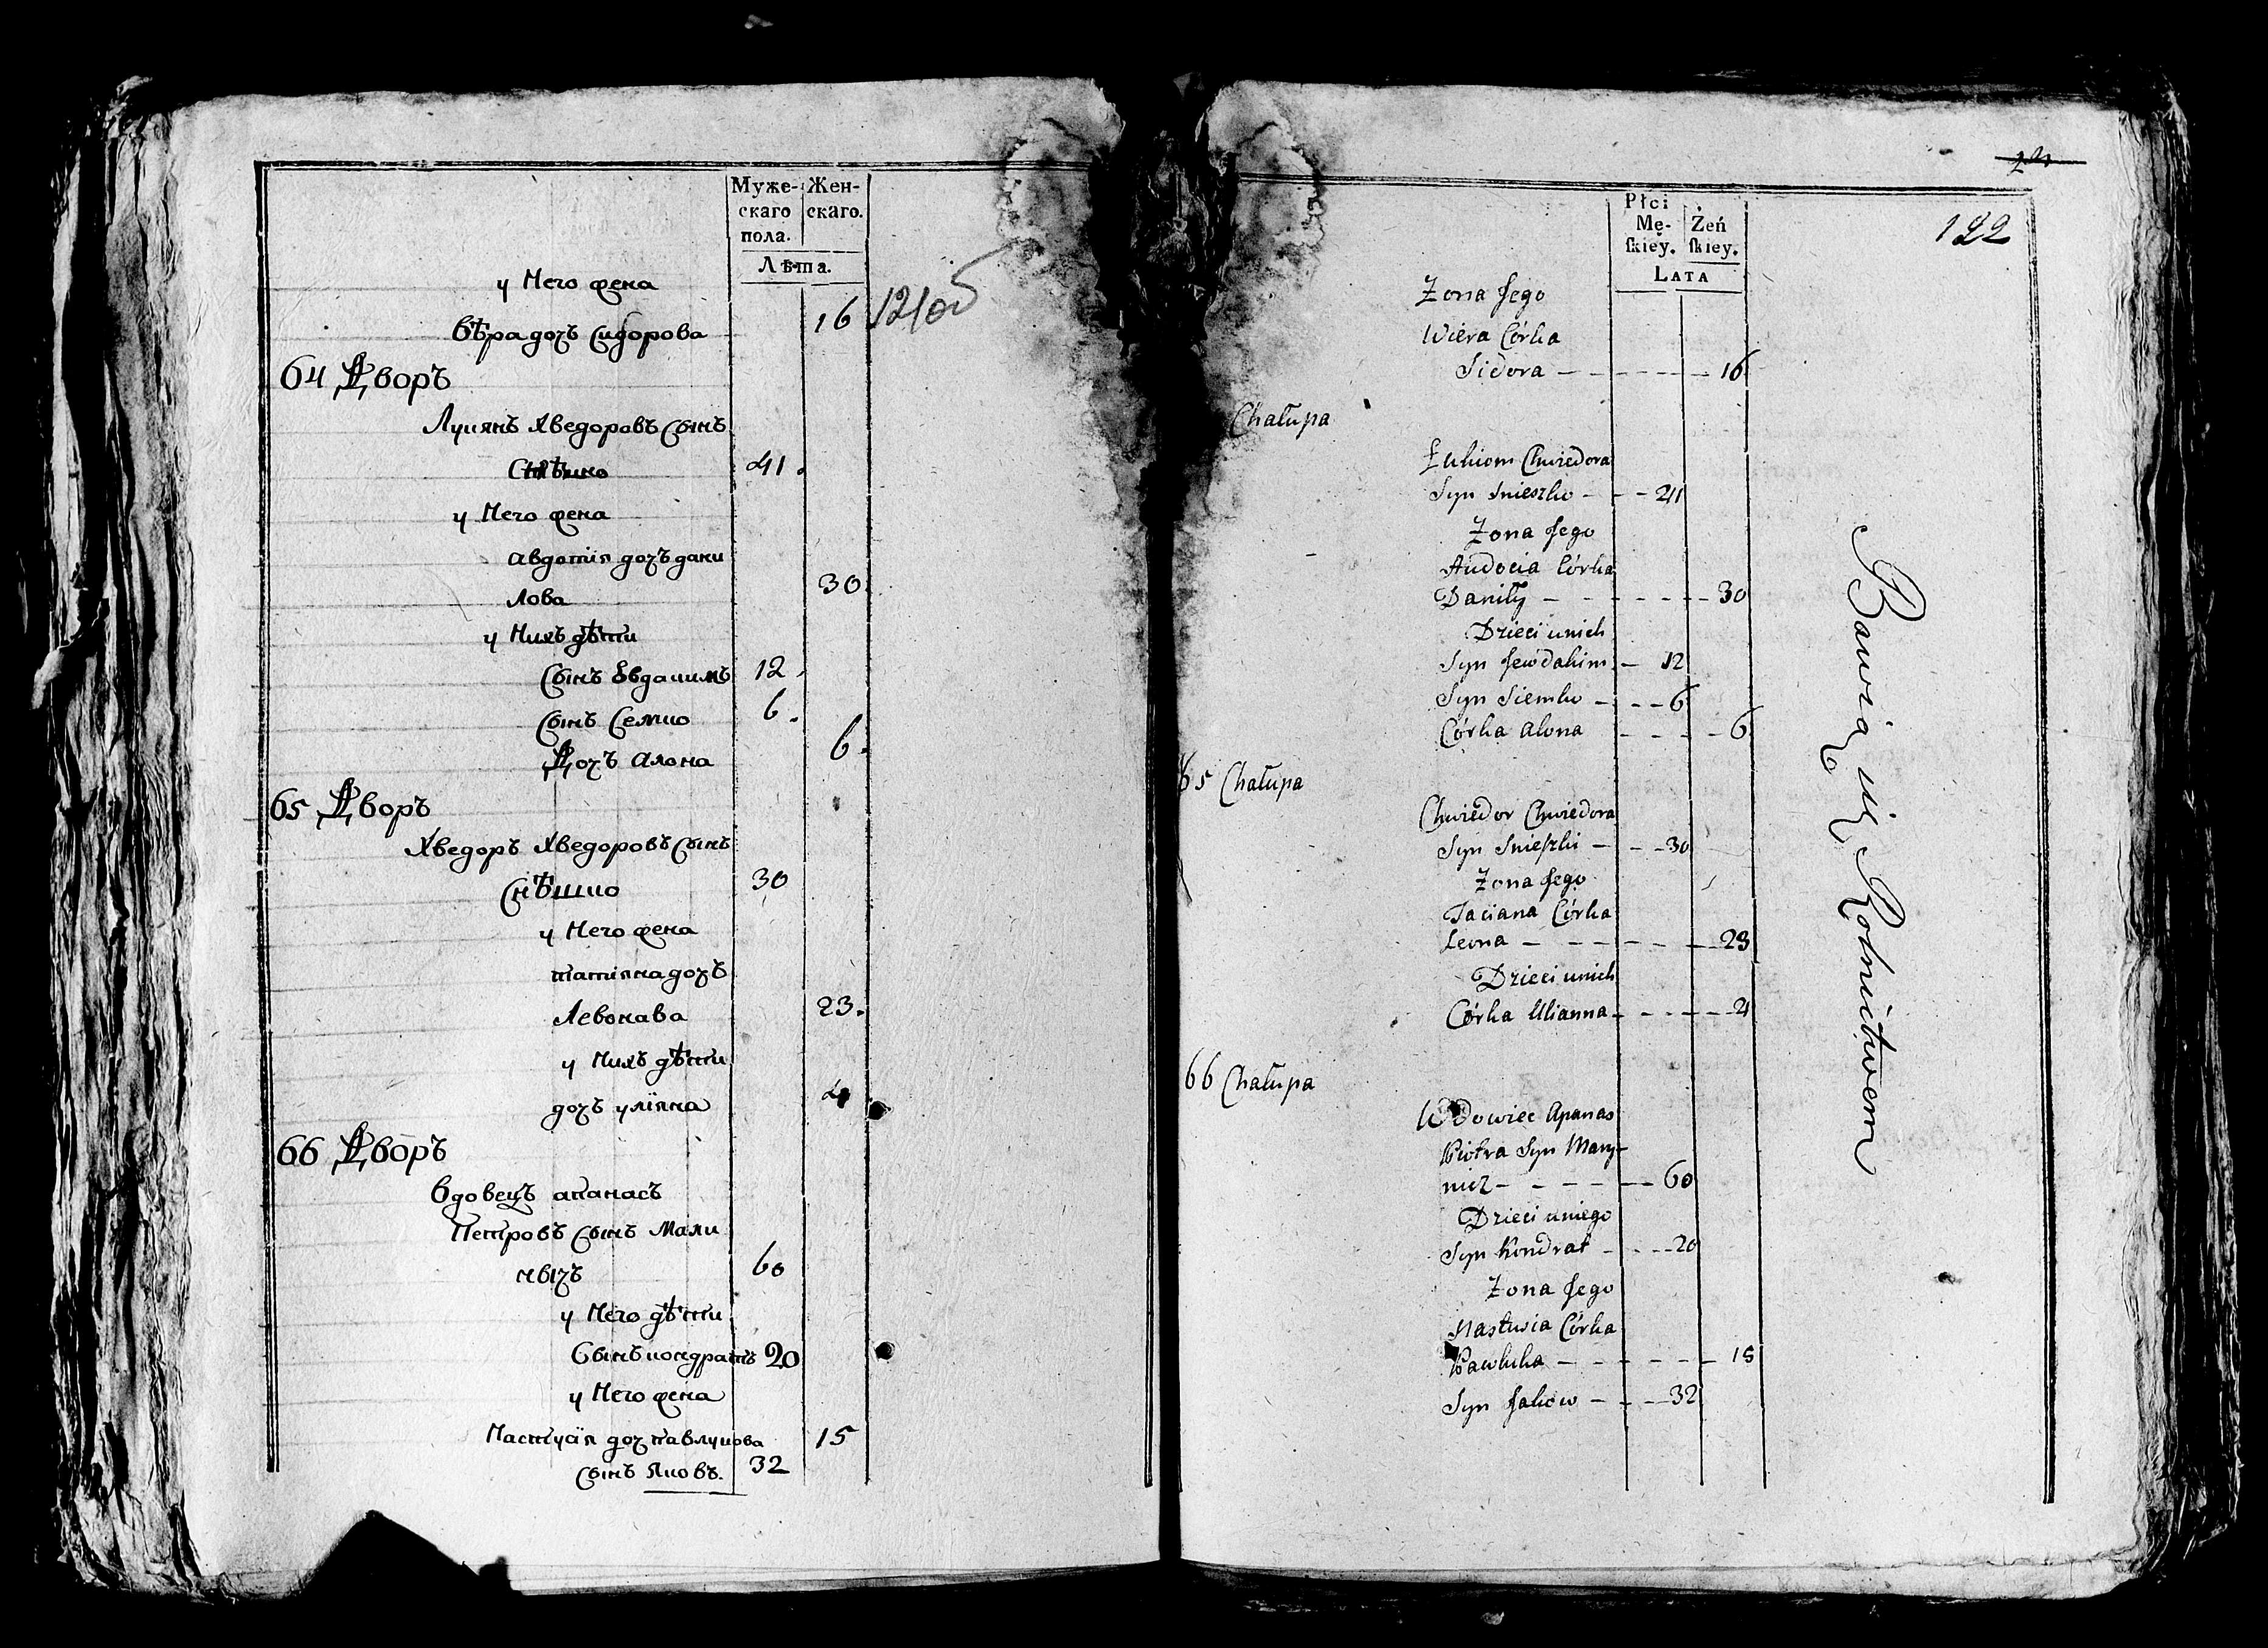 Муже-
скаго
пола.
Жен-
скаго.
Лѣта.
121об
у Него жена
вѣра дочъ Сидорова 16
64 Дворъ
Лукянъ Хведоровъ Сынъ
Снѣшко 41.
у Него жена
авдотія дочъ дани
лова 30
у Нихъ дѣти
Сынъ Евдакимъ 12.
Сынъ Семко 6.
Дочъ алона 6.
65 Дворъ
Хведоръ Хведоровъ Сынъ
Снѣшко 30
у Него жена
татіяна дочъ
Левонава 23.
у Нихъ дѣти
дочъ уліяна 4
66 Дворъ
вдовецъ апанасъ
Петровъ Сынъ Мали
нвичъ 60
у Него дѣти
Сынъ кондратъ 20
у Него жена
Настусія доч павлукова 15
Сынъ Яковъ. 32
122
Płci
Mę-
ſkiey.
Żeń
ſkiey.
LATA
Żona Jego
Wiera Córka
Sidora - - - - - - 16
Chałupa
Łukiom Chwiedora
Syn Snieszko - - - 41
Żona Jego
Audocia Córka
Daniły - - - - - - 30
Dzieci u nich
Syn Jewdakim - 12
Syn Siemko - - - 6
Córka Alona - - - - 6
65 Chałupa
Chwiedor Chwiedora
SynСнieſzki - - - 30
Żona Jego
Taciana Córka
Leona - - - - - - 23
Dzieci u nich
Córka Ulianna - - - - - 4
66 Chałupa
Wdowiec Apanas
Piotra Syn Mary-
nicz - - - - - - 60
Dzieci u niego
Syn Kondrat - - - 20
Żona Jego
Nastusia Córka
Pawluka - - - - - - 15
Syn Jakow - - - 32
Bawią się Rolnictwem